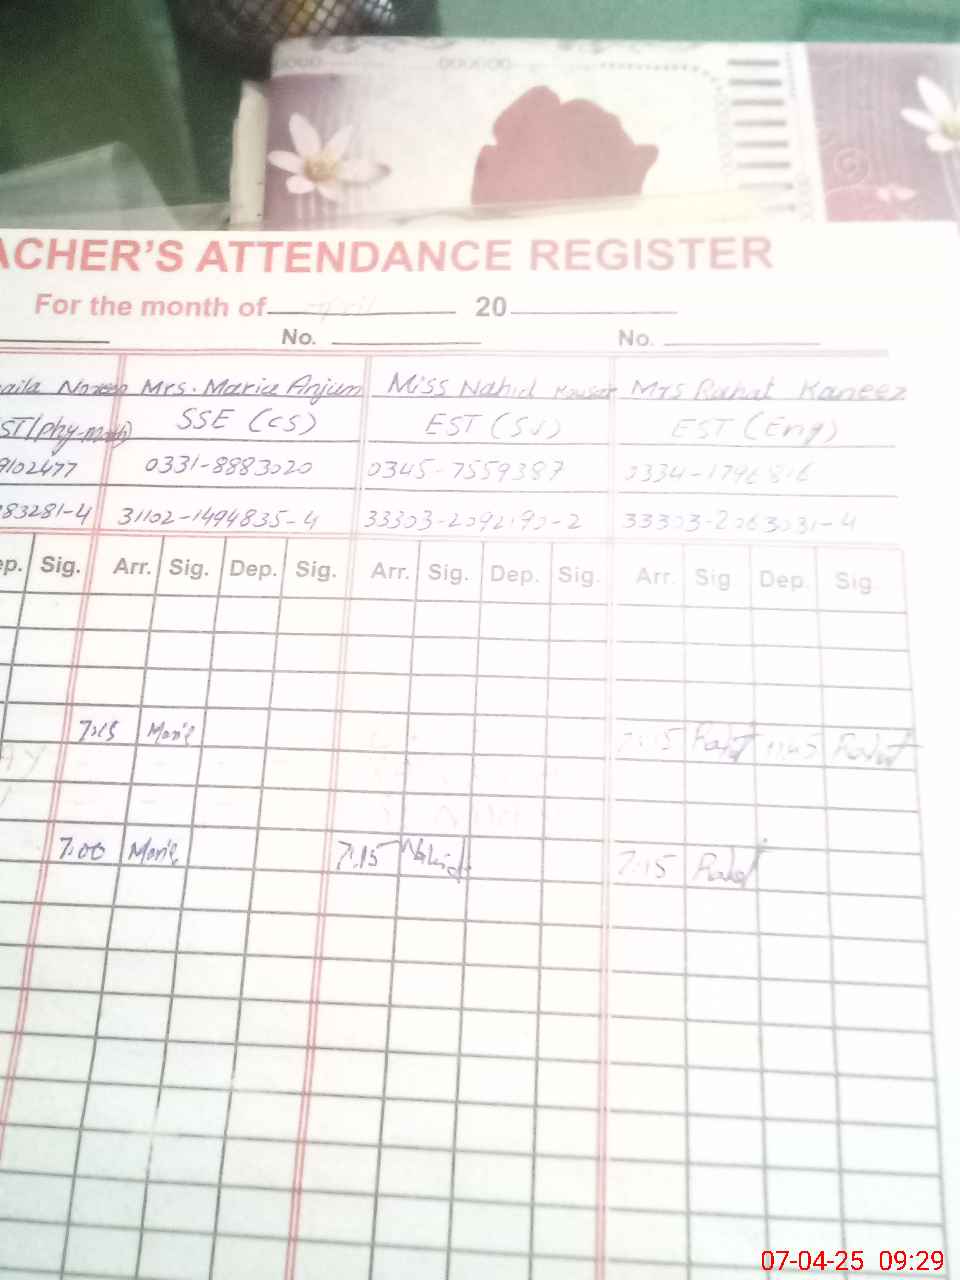 ACHER'S ATTENDANCE REGISTER
For the month of April 20
No. No.
aila Mrs. Maria Anjum Miss Nahid Kousar Mrs Rahat Kaneez
SST(phy-math) SSE (CS) EST (SV) EST (Eng)
9102477 0331-8883020 0345-7559387 0334-1796816
83281-4 31102-1494835-4 33303-2092190-2 33303-2063031-4
ep. Sig. Arr. Sig. Dep. Sig. Arr. Sig. Dep. Sig. Arr. Sig Dep. Sig.
7:15 Maria 7:15 Rahat 11:45 Rahat
7:00 Maria 7:15 Nahid 7:15 Rahat
07-04-25 09:29